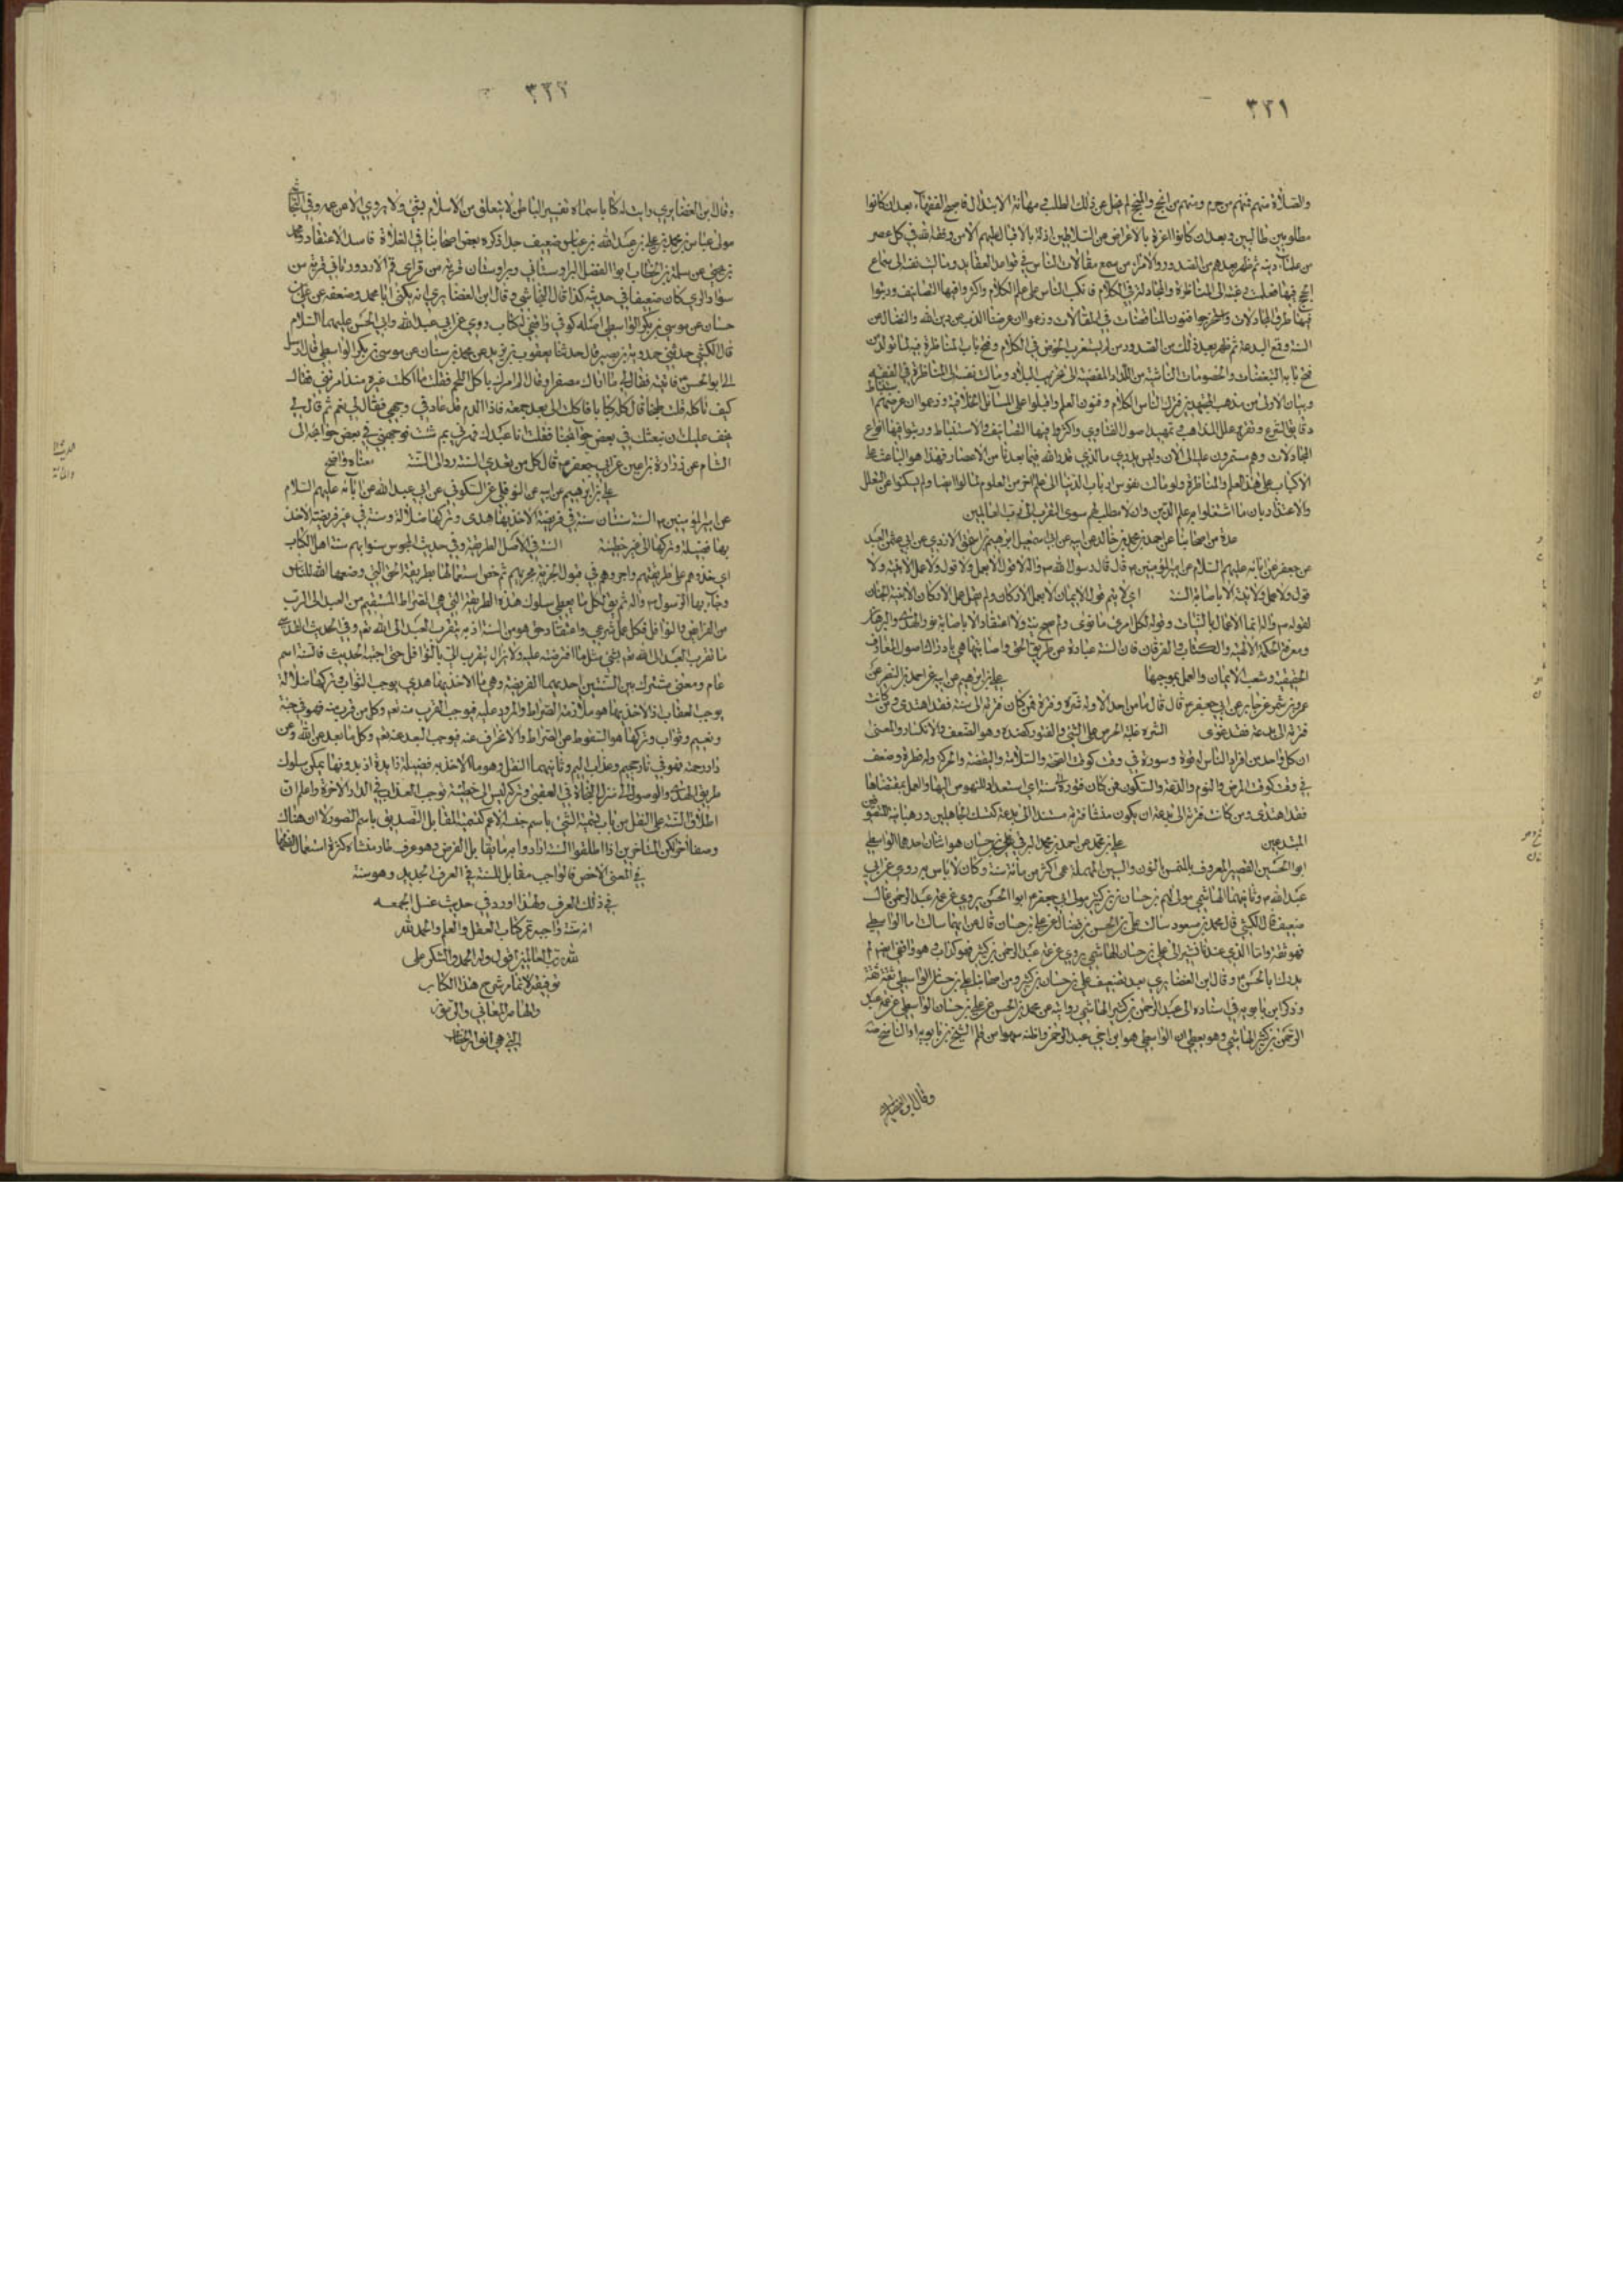 ٣٢١
والصلات منهم فمنهم من حرم ومنهم من انجح والمنجح لم يخل عن ذلك الطلب في مهانة الابتذال فاصبح الفقهاء بعد ان كانوا
مطلوبين طالبين وبعد ان كانوا اعزة بالاعراض عن السلاطين اذلة بالاقبال عليهم الا من وفقه الله في كل عصر
من علماء دينه ثم ظهر بعدهم من الصدور والامراء من سمع مقالات الناس في قواعد العقايد ومالت نفسه الى سماع
الحجج فيها فعلمت رغبته الى المناظرة والمجادلة في الكلام فانكب الناس على علم الكلام واكثروا فيها التصانيف ورتبوا
فيها طرق المجادلات واستخرجوا فنون المناقضات في المقالات وزعموا ان غرضنا الذب عن دين الله والنضال عن
السنة وقمع البدعة ثم ظهر بعد ذلك من الصدور من لم يستغرب الخوض في الكلام وفتح باب المناظرة فيه لما تولد من
فتح بابه التعصبات والخصومات الناشية من اللداد المفضية الى تخريب البلاد ومالت نفسه الى المناظرة في الفقه
وبيان الاولى من مذهب المجتهدين فترك الناس الكلام وفنون العلم واقبلوا على المسائل الخلافية وزعموا ان غرضهم استنباط
دقايق الشرع وتقرير علل المذاهب وتمهيد اصول الفتاوى واكثروا فيها التصانيف والاستنباط ورتبوا فيها انواع
المجادلات وهم مستمرون عليه الى الآن وليس يدري ما الذي قدر الله فيما بعدنا من الاعصار فهذا هو الباعث على
الاكباب على هذا العلم والمناظرة ولو مالت نفوس ارباب الدنيا الى علم اخر من العلوم لمالوا ايضا ولم يسكتوا عن التعلل
والاعتذار بان ما اشتغلوا به علم الدين وان لا مطلب لهم سوى التقرب الى رب العالمين
عدة من اصحابنا عن احمد بن محمد بن خالد عن ابيه عن ابي اسمعيل ابرهيم بن اسحق الازدي عن ابي عثمن العبد
عن جعفر عن ابائه عليهم السلام عن امير المؤمنين ع قال قال رسول الله ص واله لا قول الا بعمل ولا قول ولا عمل الا بنية ولا
قول ولا عمل ولا نية الا باصابة السنة اي لا يتم قول الايمان الا بعمل الاركان ولم يحصل عمل الاركان الا بنية الجنان
لقوله ص واله انما الاعمال بالنيات وقوله لكل امرئ ما نوى ولم يصح نية ولا اعتقاد الا باصابة نور الهدى والبرهان
ومعرفة الحكمة الالهية والكتاب والفرقان فان السنة عبارة عن طريق الحق واصابتها هي بادراك اصول المعارف
الحقيقية وشعب الايمان والعمل بموجبها علي بن ابرهيم عن ابيه عن احمد بن النضر عن
عمرو بن شمر عن جابر عن ابي جعفر ع قال قال ما من احد الا وله شرة وفترة فمن كان فترته الى سنة فقد اهتدى ومن كانت
فترته الى بدعة فقد غوى الشره غلبة الحرص على الشيء والفتور كضده وهو الضعف والانكسار والمعنى
ان كل واحد من افراد الناس له قوة وسورة في وقت كوقت الصحة والسلامة واليقظة والحركة وله فترة وضعف
في وقت كوقت المرض والنوم والدعة والسكون فمن كان فتوره الى سنة اي استعداد النهوض اليها والعمل بمقتضاها
فقد اهتدى ومن كانت فترته الى بدعة ان يكون منشأ فترته مستندا الى بدعة كنسك الجاهلين ورهبانية المتصوفين
المبتدعين علي بن محمد عن احمد بن محمد البرقي عن علي بن حسان هو اثنان احدهما الواسطي
ابو الحسين القصير المعروف بالمنمس بالنون والسين المهملة عمي اكثر من مائة سنة وكان لا باس به روى عن ابي
عبد الله ع وثانيهما الهاشمي مولى لهم بن حسان بن كثير مولى ابي جعفر ع ابو الحسن يروي عن عمه عبد الرحمن غال
ضعيف قال الكشي قال محمد بن مسعود سالت علي بن الحسن بن فضال عن علي بن حسان قال عن ايهما سالت اما الواسطي
فهو ثقة واما الذي عندنا يشير الى علي بن حسان الهاشمي يروي عن عمه عبد الرحمن بن كثير فهو كذاب وهو واقفي ايضا لم
يدرك ابا الحسن ع وقال ابن الغضايري بعد تضعيف علي بن حسان بن كثير ومن اصحابنا علي بن حسان الواسطي ثقة ثقة
وذكر ابن بابويه في اسناده الى عبد الرحمن بن كثير الهاشمي روايته عن محمد بن الحسن عن علي بن حسان الواسطي عن عمه عبد
الرحمن بن كثير الهاشمي وهو يعطي ان الواسطي هو ابن اخي عبد الرحمن واظنه سهوا من قلم الشيخ بن بابويه او الناسخ منه
وقال ابن الغضايري
٣٢٢
وقال ابن الغضايري رايت له كتابا سماه تفسير الباطن لا يتعلق من الاسلام بشيء ولا يروي الا عن عمه وفي النجاشي
مولى عباس بن محمد بن علي بن عبد الله بن عباس ضعيف جدا ذكره بعض اصحابنا في الغلاة فاسد الاعتقاد ومحمد
بن يحيى عن سلمة بن الخطاب ابو الفضل البراوستاني وبراوستان قرية من قراى قم الازدورقاني قرية من
سواد الري كان ضعيفا في حديثه كذا قال النجاشي وقال ابن الغضايري انه يكنى ابا محمد وضعفه عن علي بن
حسان عن موسى بن بكر الواسطي اصله كوفي واقفي له كتاب روى عن ابي عبد الله وابي الحسن عليهما السلام
قال الكشي حدثني حمدويه بن نصير قال حدثنا يعقوب بن يزيد عن محمد بن سنان عن موسى بن بكر الواسطي قال ارسل
الي ابو الحسن ع فاتيته فقال لي ما لي اراك مصفرا وقال الم امرك باكل اللحم فقلت ما اكلت غيره منذ امرتني فقال
كيف تاكله قلت طبخا قال كله كبابا فاكلت الي بعد جمعة فاذا الدم قد عاد في وجهي فقال لي نعم ثم قال لي
يخف عليك ان نبعثك في بعض حوايجنا فقلت انا عبدك فمرني بم شئت فوجهني في بعض حوايجه الى
الشام عن زرارة بن اعين عن ابي جعفر ع قال كل من تعدى السنة رد الى السنة معناه واضح
علي بن ابرهيم عن ابيه عن النوفلي عن السكوني عن ابي عبد الله عن آبائه عليهم السلام
عن امير المؤمنين ع السنة سنتان سنة في فريضة الاخذ بها هدى وتركها ضلالة وسنة في غير فريضة الاخذ
بها فضيلة وتركها الى غير خطيئة السنة في الاصل الطريقة وفي حديث المجوس سنوا بهم سنة اهل الكتاب
اي خذوهم على طريقتهم واجروهم في قبول الجزية مجريهم ثم خص استعمالها بطريقة الحق التي وضعها الله للناس
وجاء بها الرسول ص واله ثم يق لكل ما يعطي سلوك هذه الطريقة التي هي الصراط المستقيم من العبد الى الرب
من الفرايض والنوافل فكل عمل شرعي واعتقاد حق هو من السنة اذ به يتقرب العبد الى الله تعم وفي الحديث القدسي
ما تقرب العبد الى الله تعم بشيء مثل ما افترضته عليه ولا يزال يتقرب الي بالنوافل حتى احبه الحديث فالسنة اسم
عام ومعنى مشترك بين السنتين احديهما الفريضة وهي ما الاخذ بها هدى يوجب الثواب وتركها ضلالة
يوجب العقاب اذ الاخذ بها هو ملازمة الصراط والمرور عليه فيوجب القرب منه تعم وكل من قرب منه فهو في جنة
ونعيم وثواب وتركها هو السقوط عن الصراط والانحراف عنه فيوجب البعد عنه تعم وكل ما بعد عن الله وعن
دار رحمته فهو في نار جحيم وعذاب اليم وثانيهما النفل وهو ما الاخذ به فضيلة زايدة اذ بدونها يمكن سلوك
طريق الهدى والوصول الى منزل النجاة في العقبى وتركه ليس الى خطيئة توجب العذاب في الدار الاخرة واعلم ان
اطلاق السنة على النفل من باب تسمية الشيء باسم جنسه الاعم كتسمية المقابل للتصديق باسم التصور لا ان هناك
وصفا اخر لكن المتاخرين اذا اطلقوا السنة ارادوا به ما يقابل الفرض وهو عرف طار منشاه كثرة استعمال الفقهاء
في المعنى الاخص فالواجب مقابل للسنة في العرف الجديد وهو سنة
في ذلك العرف ولهذا اورد في حديث غسل الجمعه
انه سنة واجبة تم كتاب العقل والعلم والحمد لله
لله رب العالمين اقول وله الحمد والشكر على
توفيقه لاتمام شرح هذا الكتاب
والهامه المعاني
التي هي